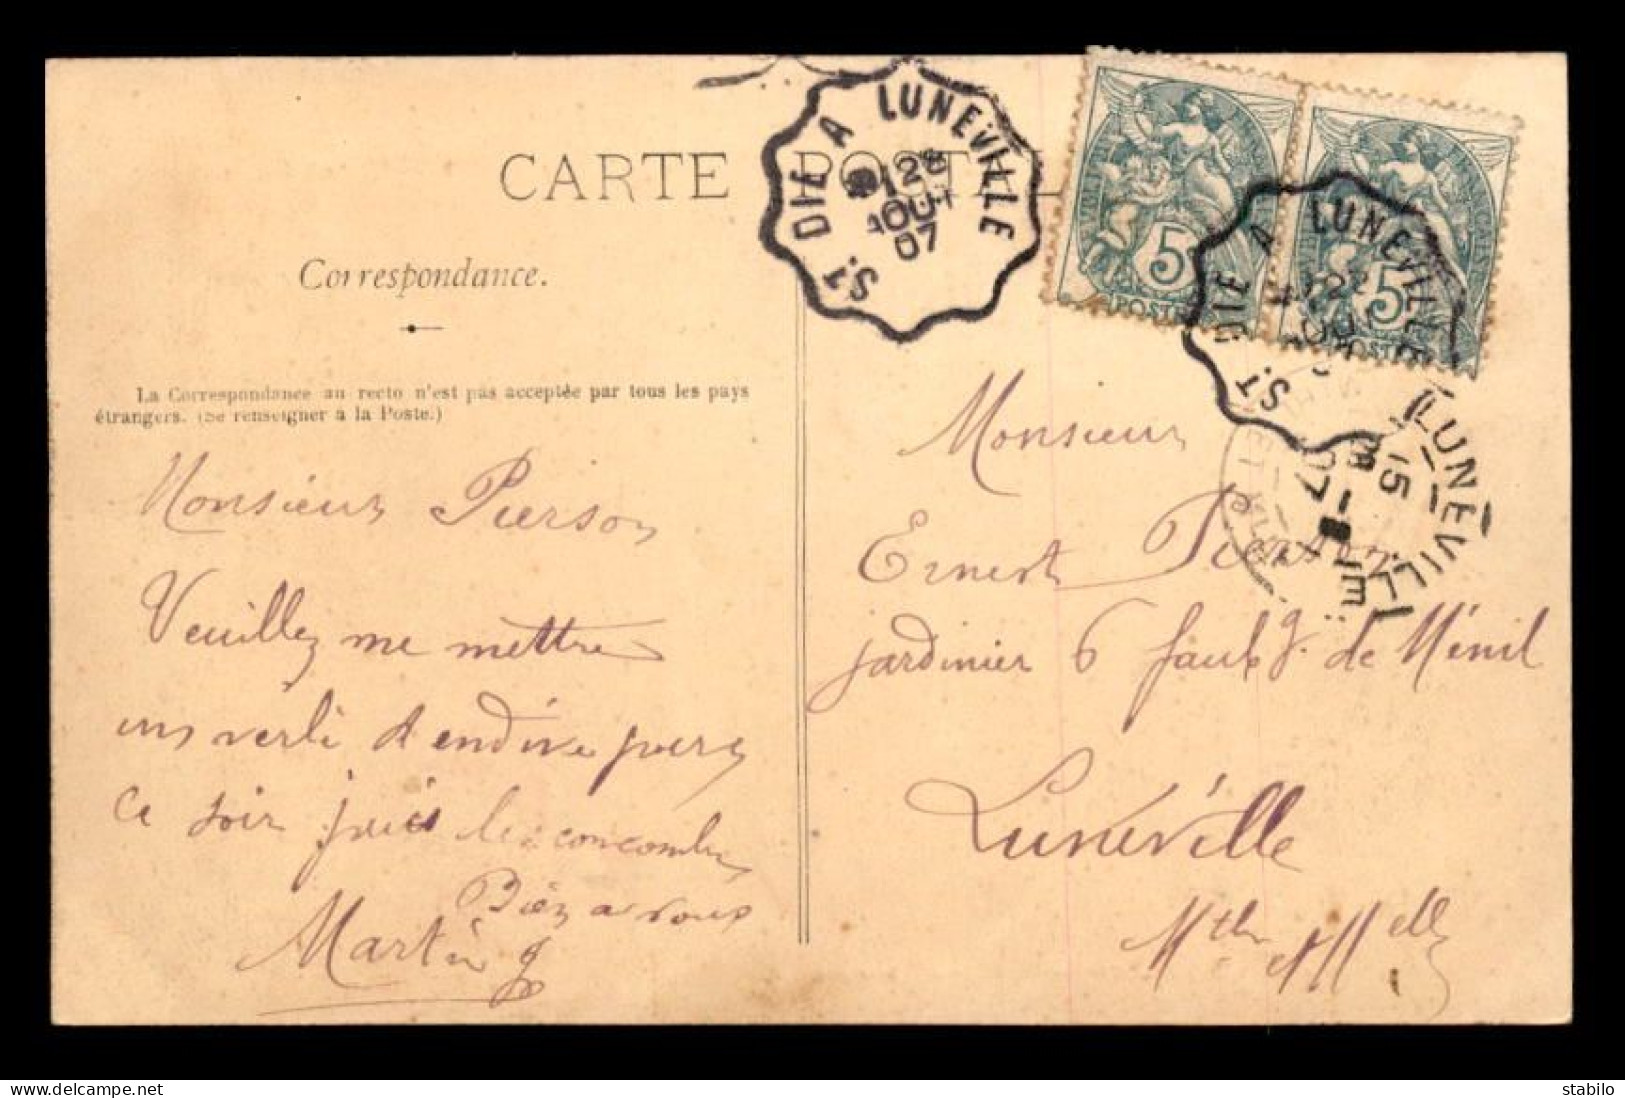 CARTE POSTALE
Correspondance.
La Correspondance au recto n'est pas acceptée par tous les pays
étrangers. (Se renseigner à la Poste.)
Monsieur Pierson
Veuillez me mettre
d'endive pour
ce soir puis les concombres
Bien a vous
Martin g
ST DIE A LUNEVILLE
22
AOUT
07
5 5
POSTES POSTES
ST DIE A LUNEVILLE
22
LUNÉVILLE
15
07
Monsieur
Ernest Pierson
jardinier 6 faubg. de Ménil
Lunéville
Mthe et Melle
www.delcampe.net
stabilo